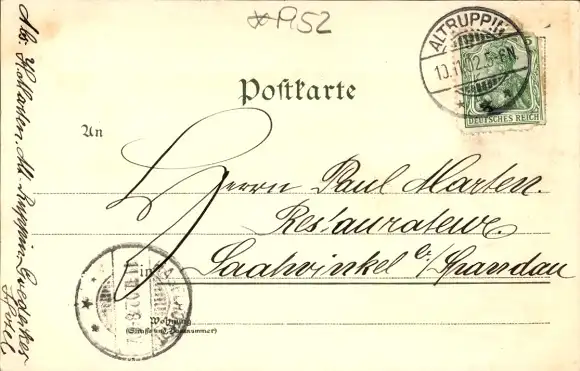 *1952
ALTRUPPIN
10.11.02.5-6N
DEUTSCHES REICH
Postkarte
An
Herrn Paul Marten.
Restaurateur.
in Saatwinkel b/Spandau
11.11.02.8-
Wohnung
(Straße und Hausnummer)
Alb. Marten, Alt Ruppin